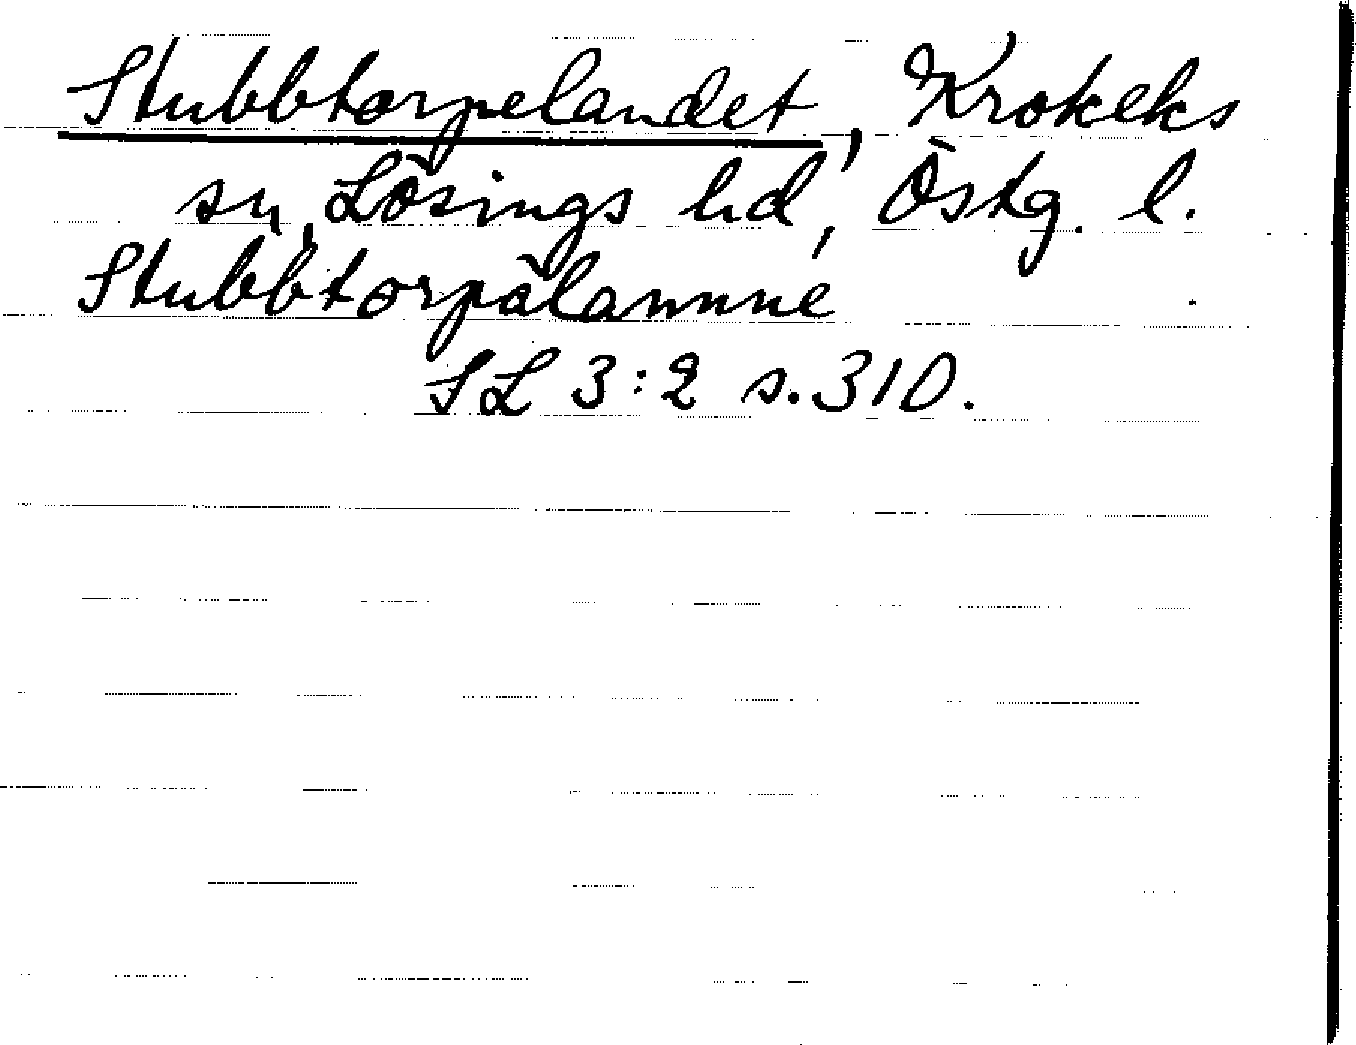 Stubbtorpelandet, Krokeks
sn, Lösings hd, Östg. l.
Stubbtorpålannne
SL 3:2 s. 310.